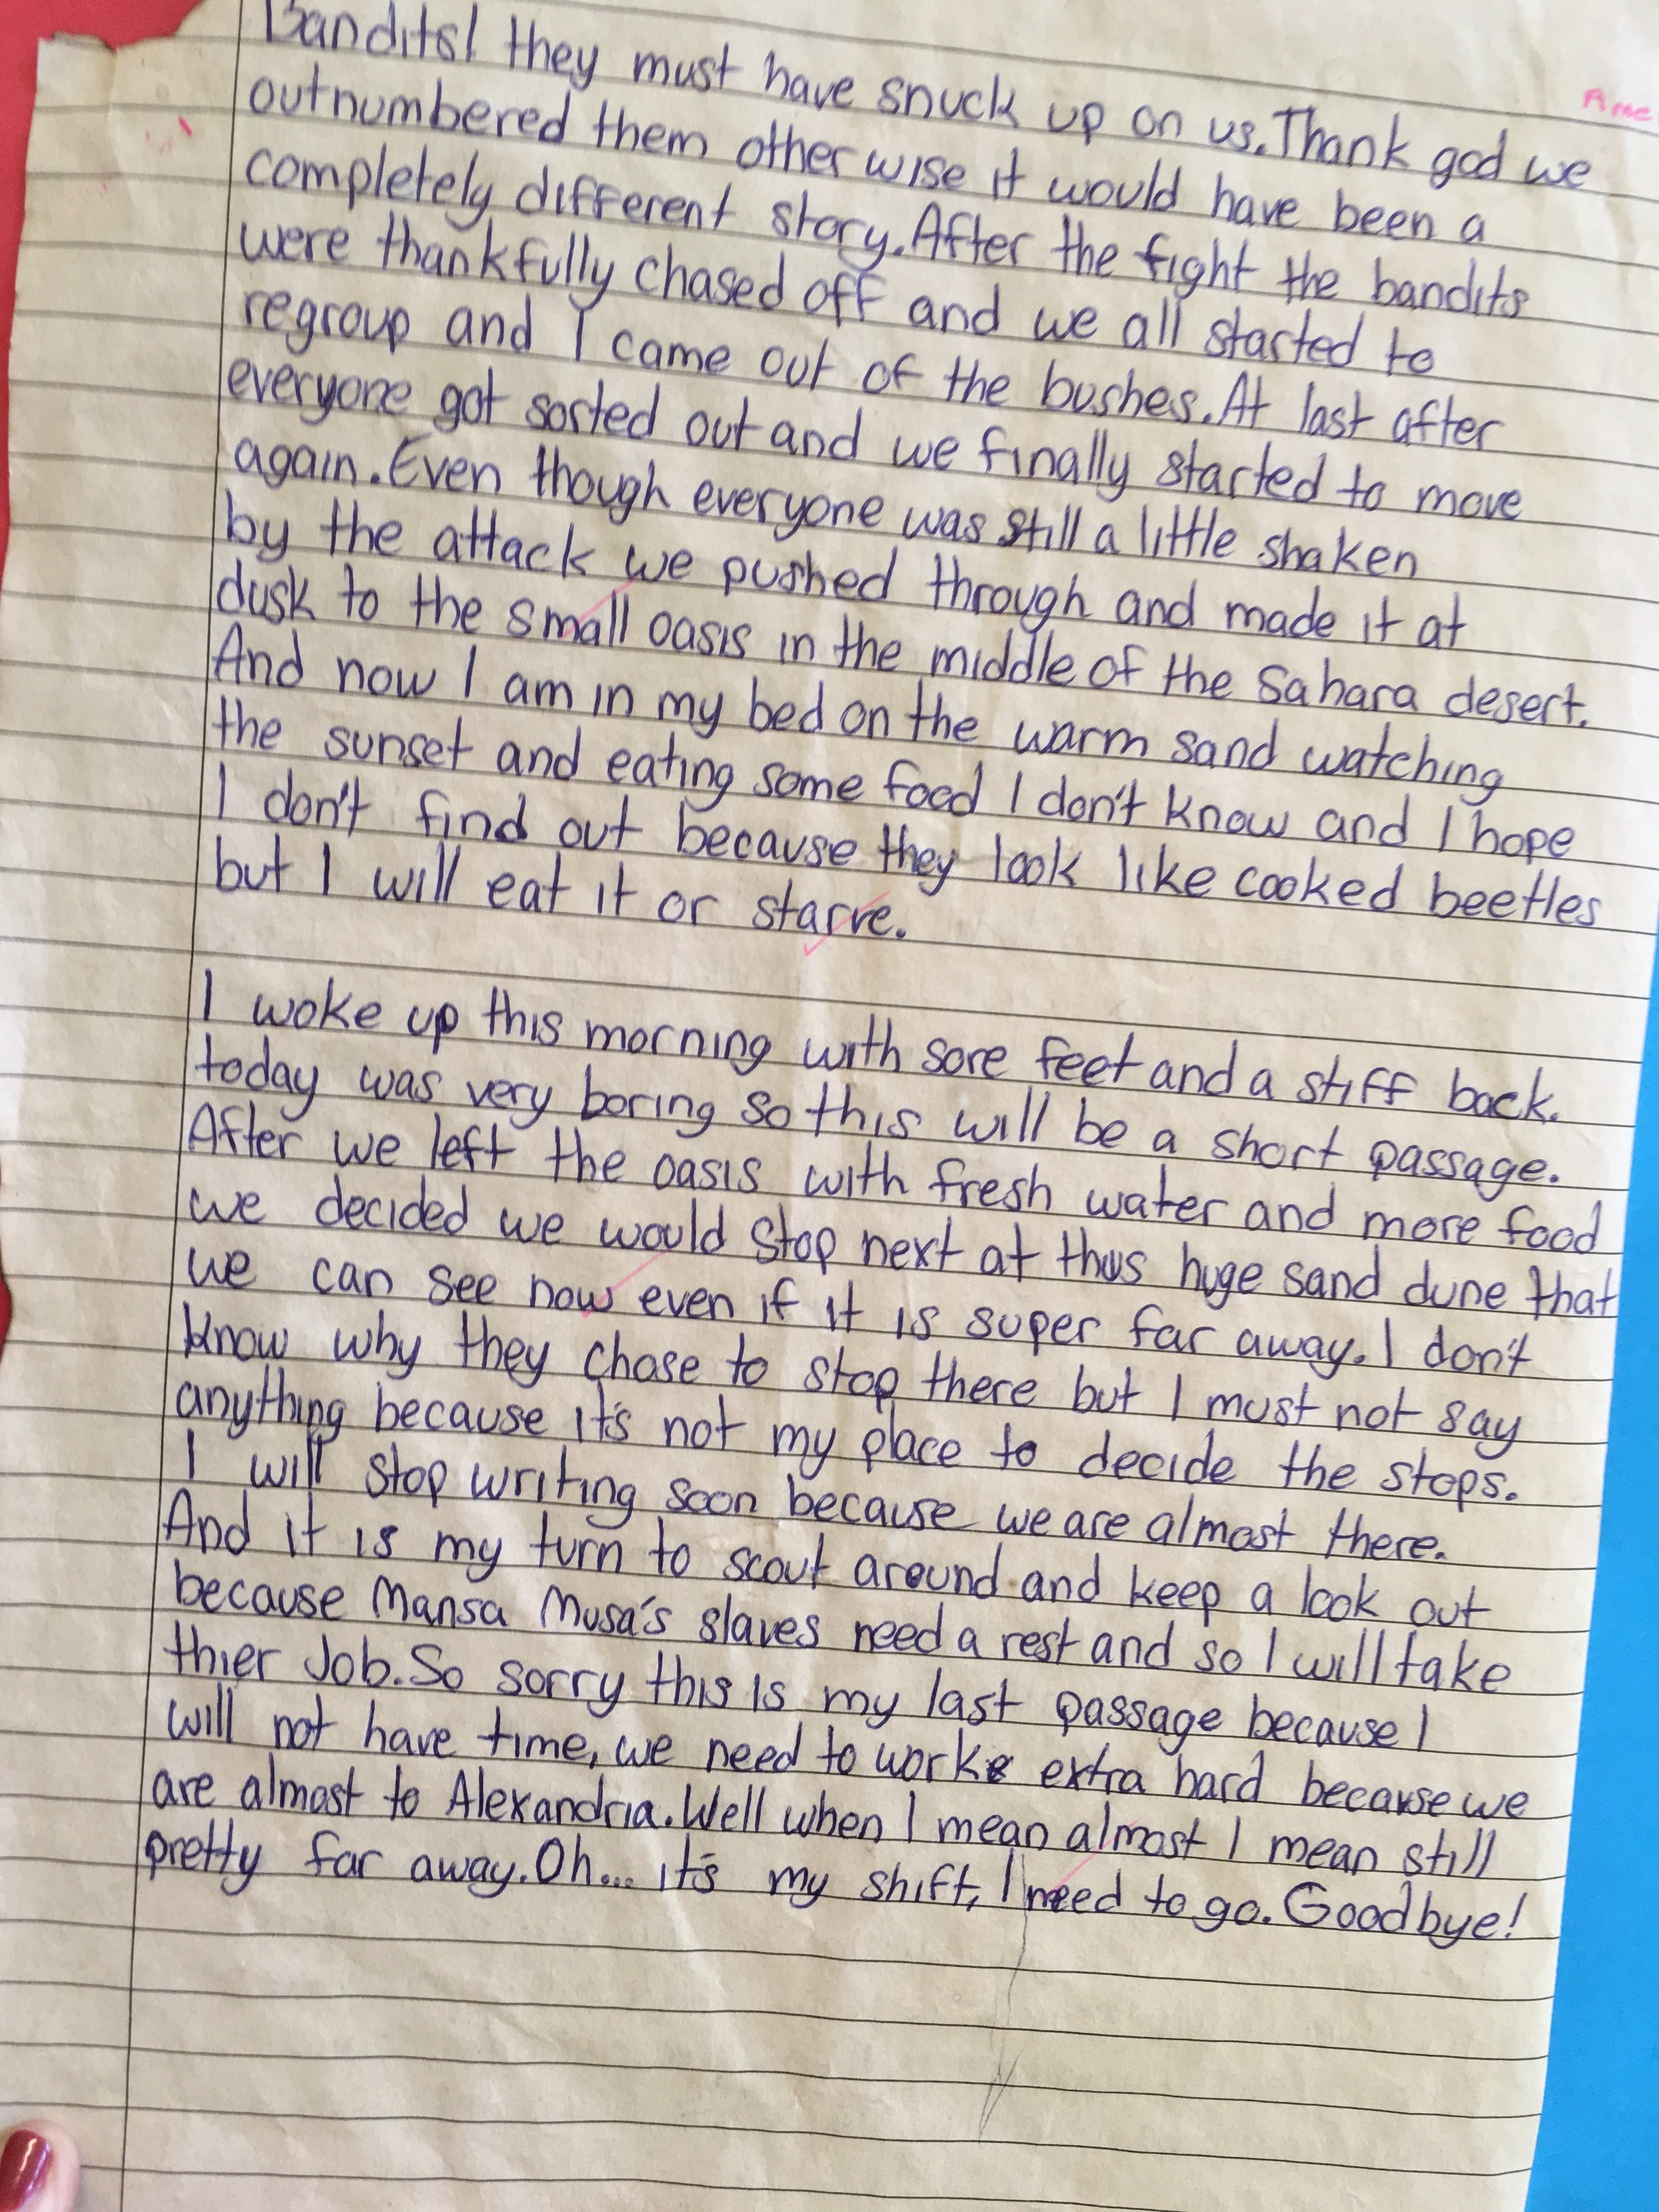 Bandits! they must have snuck up on us.Thank god we
outnumbered them other wise it would have been a
completely different story.After the fight the bandits
were thankfully chased off and we all started to
regroup and I came out of the bushes.At last after
everyone got sorted out and we finally started to move
again.Even though everyone was still a little shaken
by the attack we pushed through and made it at
dusk to the small oasis in the middle of the Sahara desert.
And now I am in my bed on the warm sand watching
the sunset and eating some food I don't know and I hope
I don't find out because they look like cooked beetles
but I will eat it or starve.
I woke up this morning with sore feet and a stiff back.
today was very boring so this will be a short passage.
After we left the oasis with fresh water and more food
we decided we would stop next at this huge sand dune that
we can see now even if it is super far away.I don't
know why they chose to stop there but I must not say
anything because it's not my place to decide the stops.
I will stop writing soon because we are almost there.
And it is my turn to scout around and keep a look out
because Mansa Musa's slaves need a rest and so I will take
thier Job.So sorry this is my last passage because I
will not have time, we need to work extra hard because we
are almost to Alexandria.Well when I mean almost I mean still
pretty far away.Oh... it's my shift, I need to go.Goodbye!